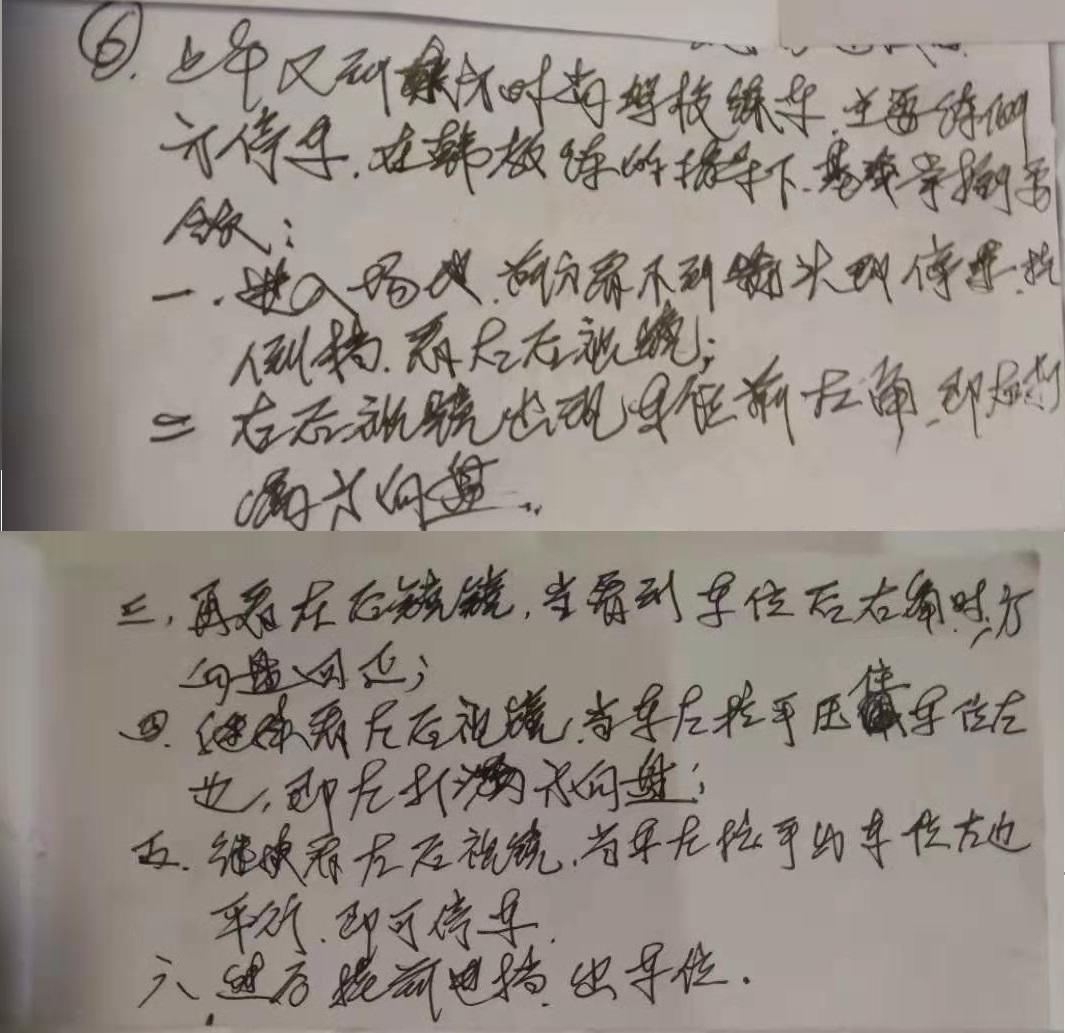 ⑥.上午又到时尚驾校练车.主要练侧
方停车.在韩教练的指导下.基本掌握要
领:
一.进入场地.前方看不到箭头即停车.挂
倒档.看左后视镜;
二 左后视镜出现车位前左角.即左打
满方向盘..
三,再看左后镜,当看到车位后右角时,方
向盘回正;
四.继续看左后视镜.当车左把手压停车位左
边,即左打满方向盘;
五.继续看左后视镜.当车左把手与车位左边
平行.即可停车.
六 挂前进档.出车位.